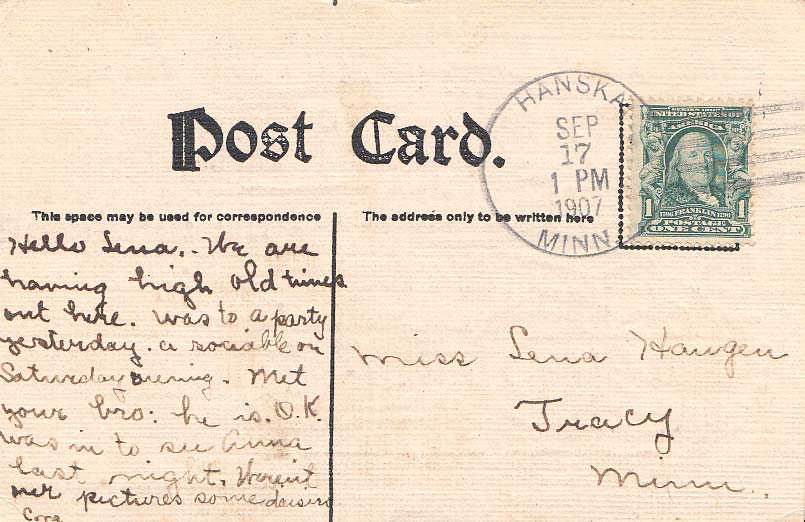 Post Card.
HANSKA
SEP
17
1 PM
1907
MINN.
SERIES 1902
UNITED STATES OF
AMERICA
1706 FRANKLIN 1790
1 1
POSTAGE
ONE CENT
This space may be used for correspondence
The address only to be written here
Hello Lena.. We are
having high old times
out here. was to a party
yesterday. a sociable on
Saturday evening. Met
your bro: he is. O.K.
was in to see Anna
last night. Weren't
her pictures some daisies
Cora
Miss Lena Haugen
Tracy
Minn..